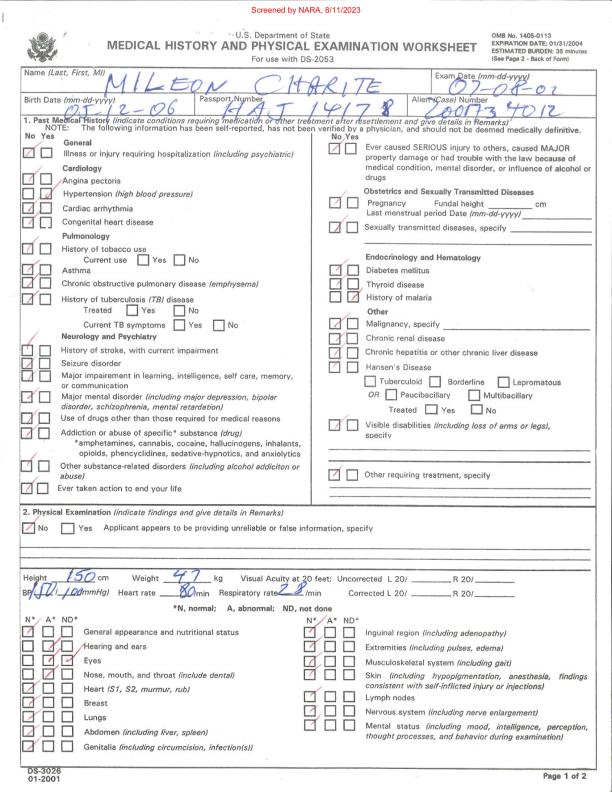 Screened by NARA, 8/11/2023
U.S. Department of State
MEDICAL HISTORY AND PHYSICAL EXAMINATION WORKSHEET
For use with DS-2053
OMB No. 1405-0113
EXPIRATION DATE: 01/31/2004
ESTIMATED BURDEN: 35 minutes
(See Page 2 - Back of Form)
Name (Last, First, MI) MILEON CHARITE
Exam Date (mm-dd-yyyy) 07-08-02
Birth Date (mm-dd-yyyy)
Passport Number HAJ 1417 8
Alien (Case) Number
1. Past Medical History (indicate conditions requiring medication or other treatment after resettlement and give details in Remarks)
NOTE: The following information has been self-reported, has not been verified by a physician, and should not be deemed medically definitive.
No Yes
General
Illness or injury requiring hospitalization (including psychiatric)
Cardiology
Angina pectoria
Hypertension (high blood pressure)
Cardiac arrhythmia
Congenital heart disease
Pulmonology
History of tobacco use
Current use Yes No
Asthma
Chronic obstructive pulmonary disease (emphysema)
History of tuberculosis (TB) disease
Treated Yes No
Current TB symptoms Yes No
Neurology and Psychiatry
History of stroke, with current impairment
Seizure disorder
Major impairment in learning, intelligence, self care, memory,
or communication
Major mental disorder (including major depression, bipolar
disorder, schizophrenia, mental retardation)
Use of drugs other than those required for medical reasons
Addiction or abuse of specific* substance (drug)
*amphetamines, cannabis, cocaine, hallucinogens, inhalants,
opioids, phencyclidines, sedative-hypnotics, and anxiolytics
Other substance-related disorders (including alcohol addiciton or
abuse)
Ever taken action to end your life
No Yes
Ever caused SERIOUS injury to others, caused MAJOR
property damage or had trouble with the law because of
medical condition, mental disorder, or influence of alcohol or
drugs
Obstetrics and Sexually Transmitted Diseases
Pregnancy Fundal height cm
Last menstrual period Date (mm-dd-yyyy)
Sexually transmitted diseases, specify
Endocrinology and Hematology
Diabetes mellitus
Thyroid disease
History of malaria
Other
Malignancy, specify
Chronic renal disease
Chronic hepatitis or other chronic liver disease
Hansen's Disease
Tuberculoid Borderline Lepromatous
OR Paucibacillary Multibacillary
Treated Yes No
Visible disabilities (including loss of arms or legs),
specify
Other requiring treatment, specify
2. Physical Examination (indicate findings and give details in Remarks)
No Yes Applicant appears to be providing unreliable or false information, specify
Height 150 cm Weight 47 kg Visual Acuity at 20 feet: Uncorrected L 20/ R 20/
BP (mmHg) Heart rate 80 /min Respiratory rate 28 /min Corrected L 20/ R 20/
*N, normal; A, abnormal; ND, not done
N* A* ND*
General appearance and nutritional status
Hearing and ears
Eyes
Nose, mouth, and throat (include dental)
Heart (S1, S2, murmur, rub)
Breast
Lungs
Abdomen (including liver, spleen)
Genitalia (including circumcision, infection(s))
N* A* ND*
Inguinal region (including adenopathy)
Extremities (including pulses, edema)
Musculoskeletal system (including gait)
Skin (including hypopigmentation, anesthesia, findings
consistent with self-inflicted injury or injections)
Lymph nodes
Nervous system (including nerve enlargement)
Mental status (including mood, intelligence, perception,
thought processes, and behavior during examination)
DS-3026
01-2001
Page 1 of 2